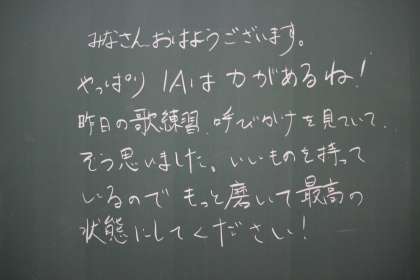 みなさんおはようございます。
やっぱり 1Aは力があるね!
昨日の歌練習、呼びかけを見ていて、
そう思いました。いいものを持って
いるので もっと磨いて最高の
状態にしてください!